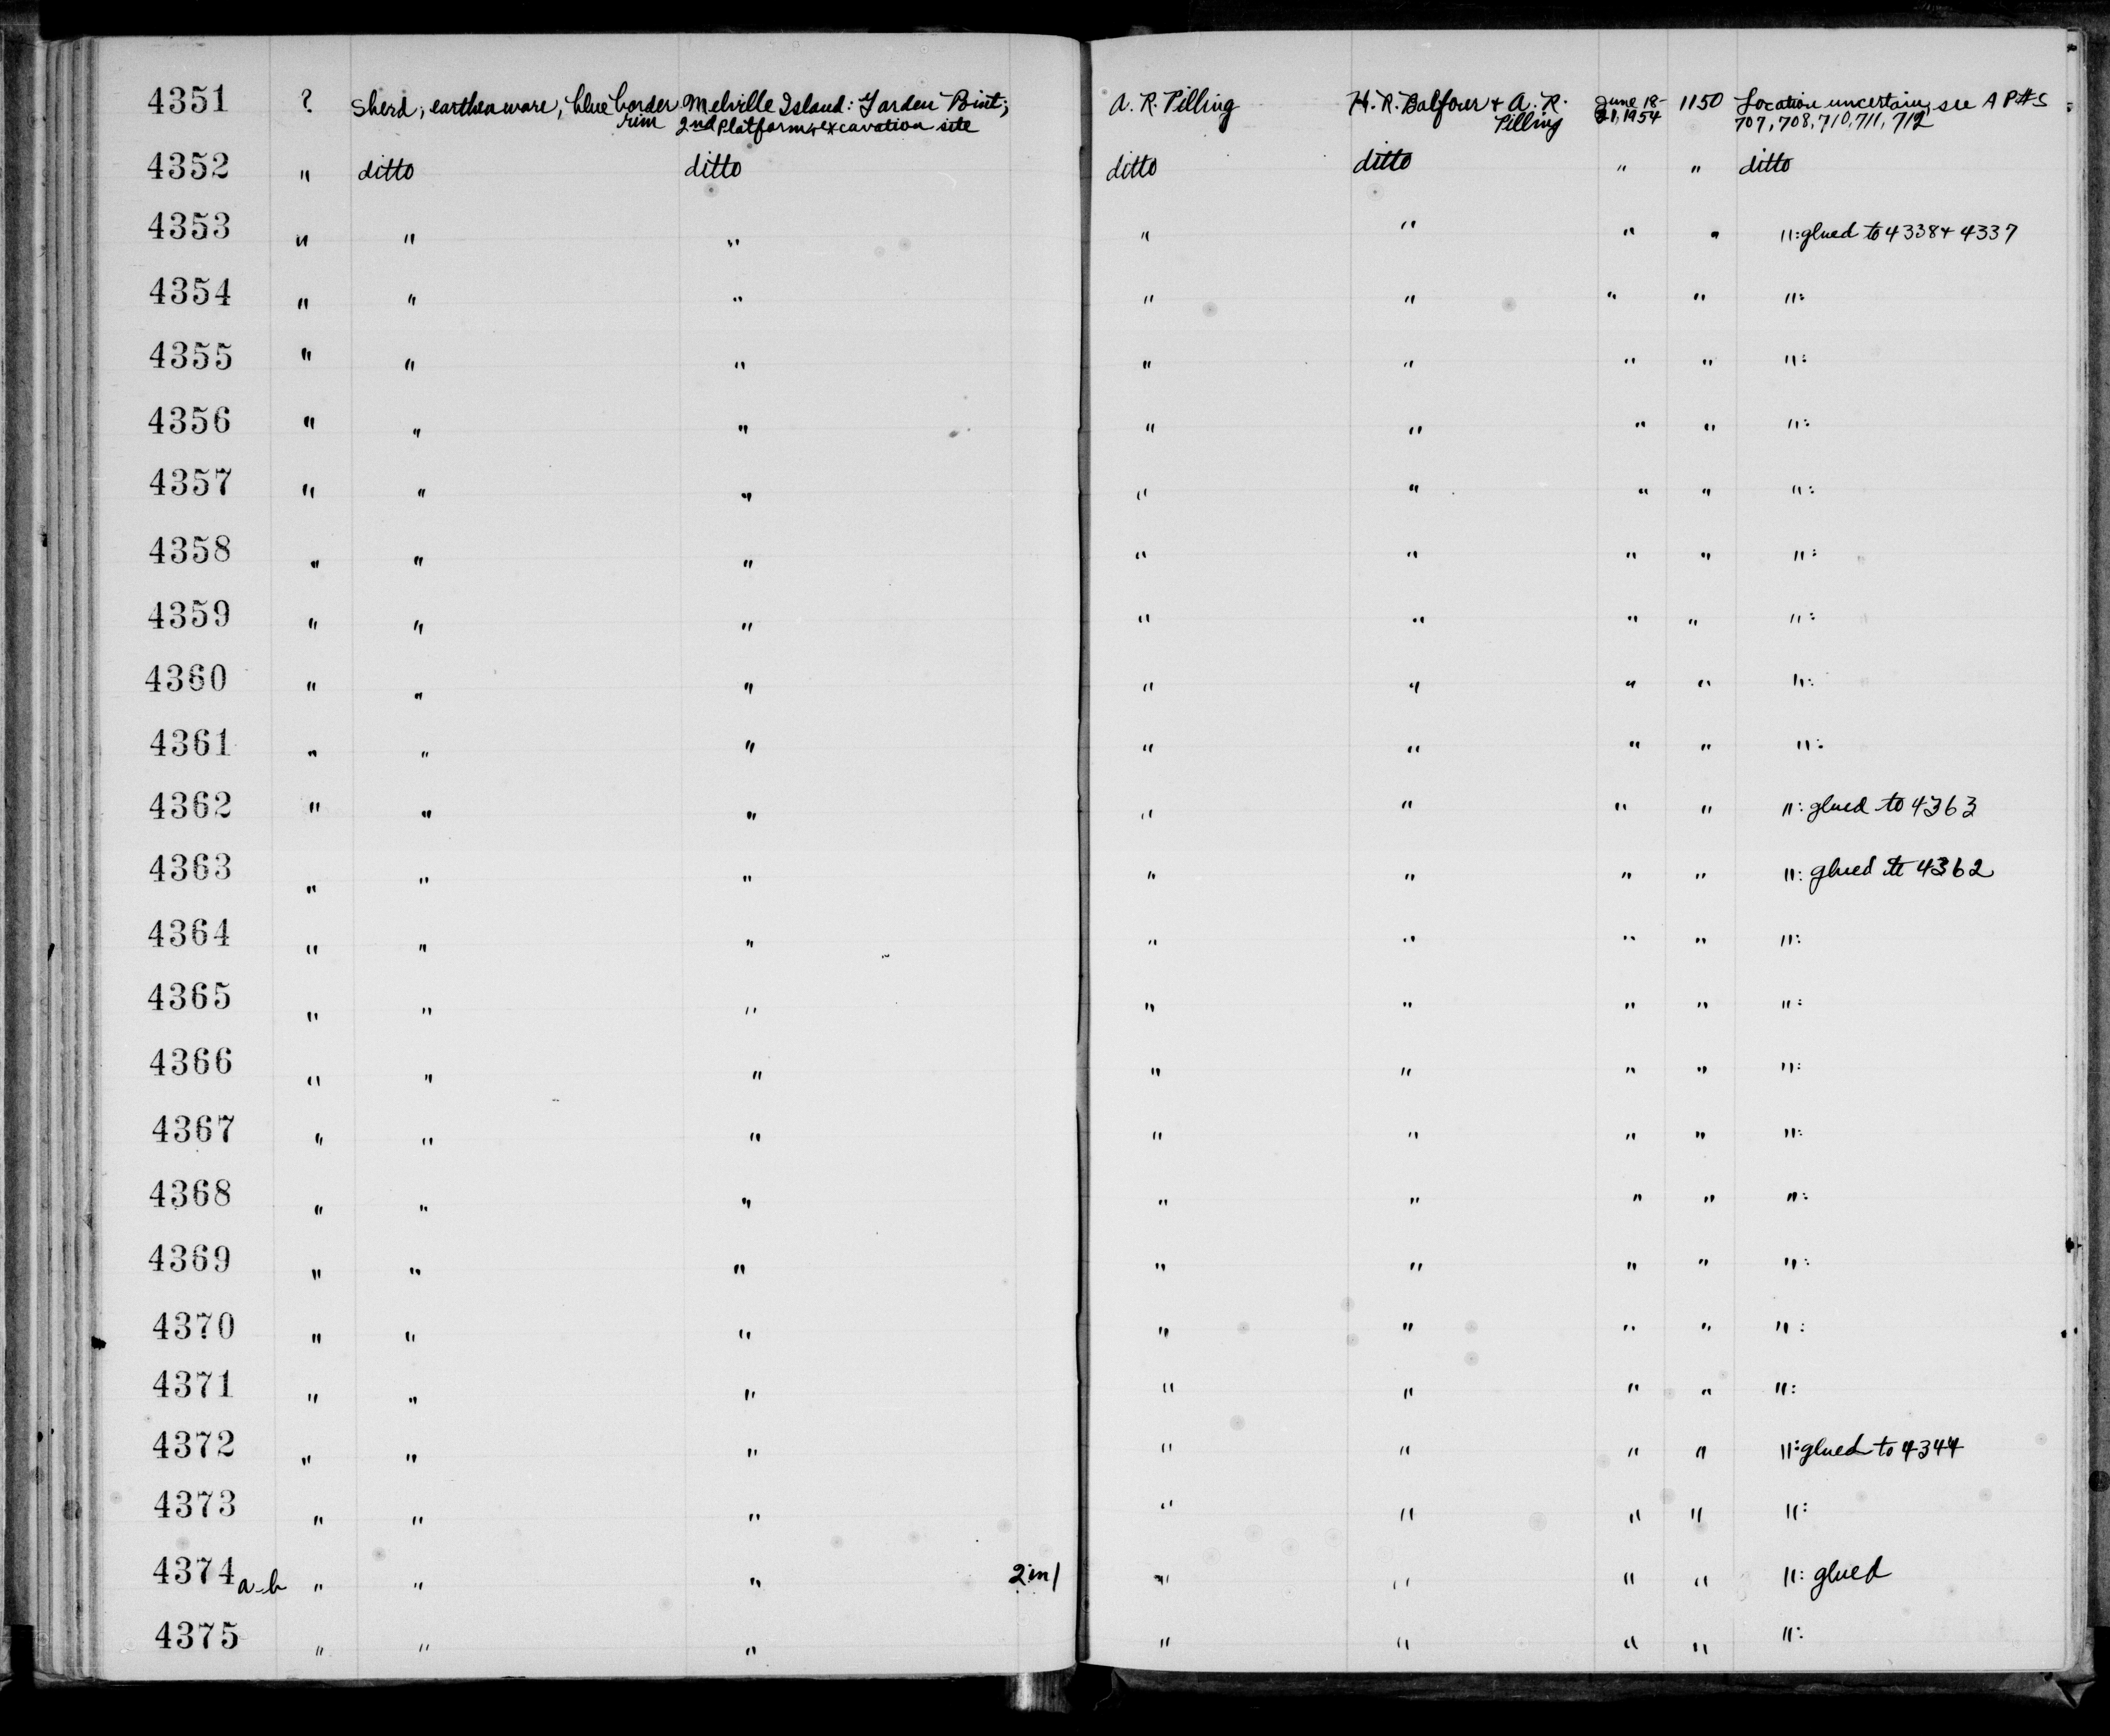 4351 ? Sherd, earthenware, blue border Melville Island: Garden Point; A. R. Pilling H. R. Balfour + A. R. June 18- 1150 Location uncertain, see A P#S
rim 2nd platform, excavation site Pilling 21, 1954 707, 708, 710, 711, 712
4352 " ditto ditto ditto ditto " " ditto
4353 " " " " " " " ": glued to 4338 + 4337
4354 " " " " " " " ":
4355 " " " " " " " ":
4356 " " " " " " " ":
4357 " " " " " " " ":
4358 " " " " " " " ":
4359 " " " " " " " ":
4360 " " " " " " " ":
4361 " " " " " " " ":
4362 " " " " " " " ": glued to 4363
4363 " " " " " " " ": glued to 4362
4364 " " " " " " " ":
4365 " " " " " " " ":
4366 " " " " " " " ":
4367 " " " " " " " ":
4368 " " " " " " " ":
4369 " " " " " " " ":
4370 " " " " " " " ":
4371 " " " " " " " ":
4372 " " " " " " " ": glued to 4344
4373 " " " " " " " ":
4374 a-b " " " 2 in 1 " " " " ": glued
4375 " " " " " " " ":